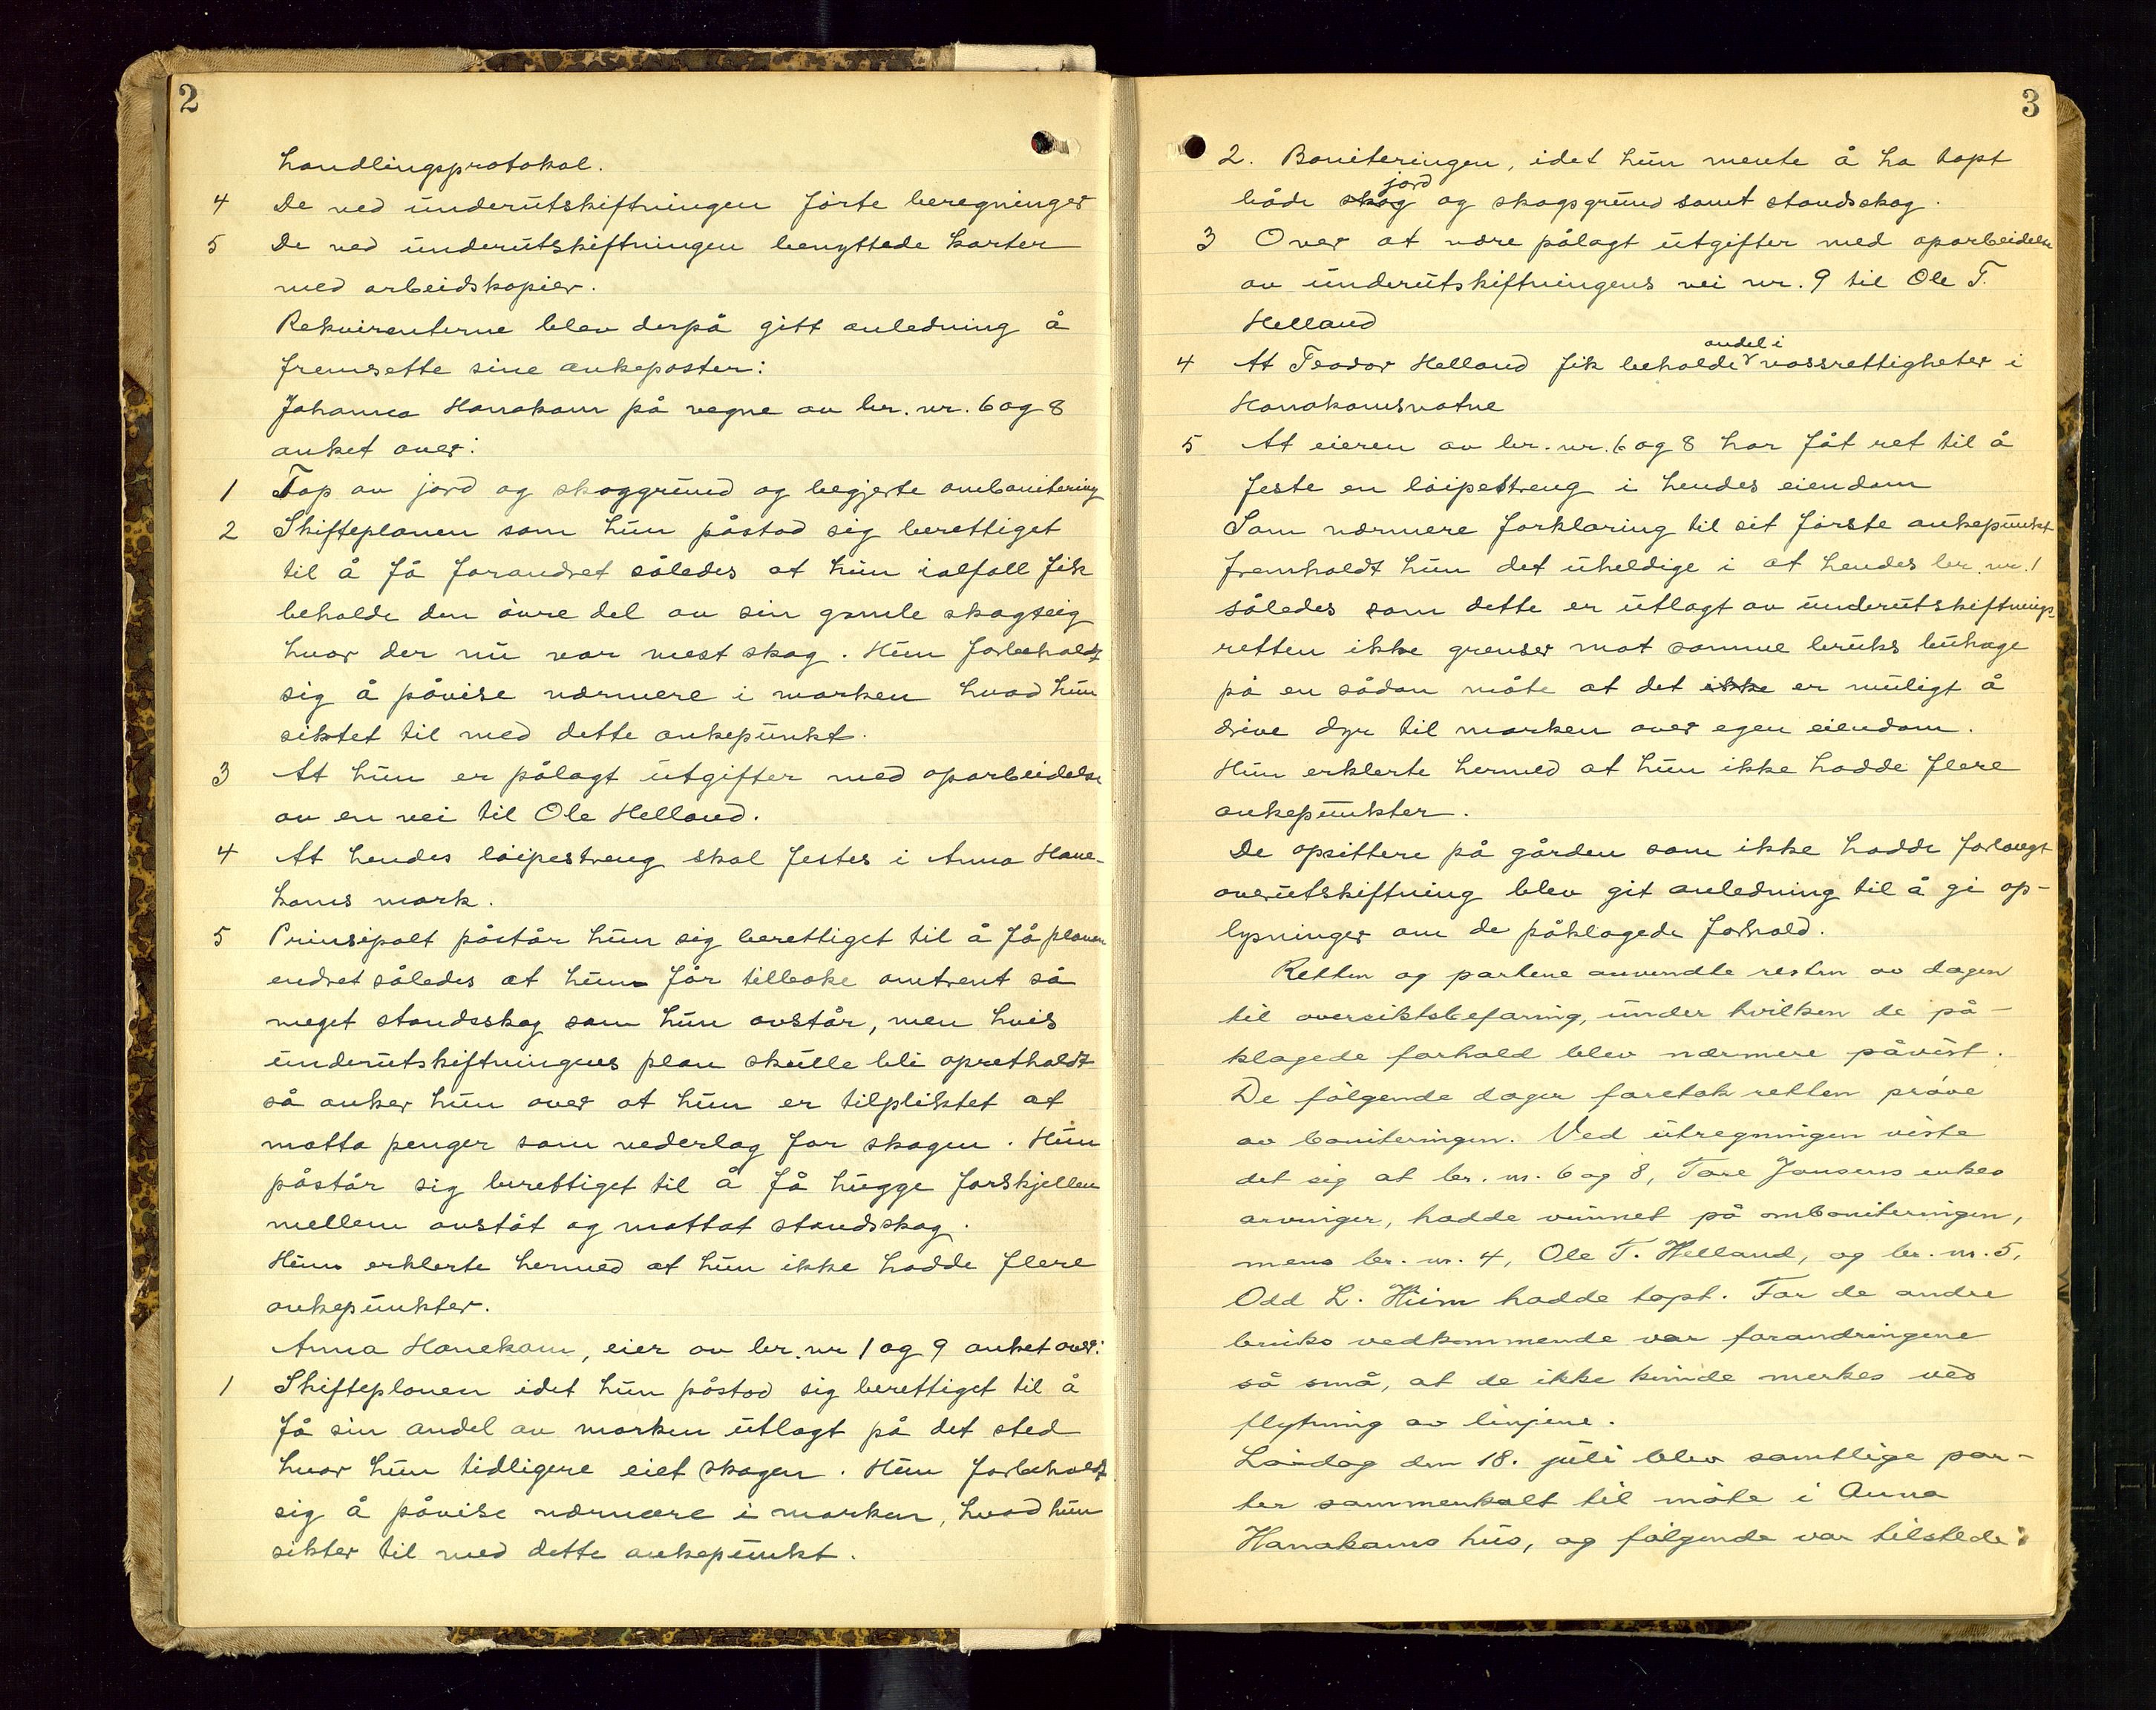 2
handlingsprotokol.
4 De ved underutskiftningen førte beregninger
5 De ved underutskiftningen benyttede karter
med arbeidskopier.
Rekvirenterne blev derpå gitt anledning å
fremsette sine ankeposter:
Johanna Hanakam på vegne av br. nr. 6 og 8
anket over:
1 Tap av jord og skoggrund og begjerte ombonitering
2 Skifteplanen som hun påstod sig berettiget
til å få forandret således at hun ialfall fik
beholde den øvre del av sin gamle skogteig
hvor der nu var mest skog. Hun forbeholdt
sig å påvise nærmere i marken hvad hun
siktet til med dette ankepunkt.
3 At hun er pålagt utgifter med oparbeidelse
av en vei til Ole Helland.
4 At hendes løipestreng skal festes i Anna Hane-
kams mark.
5 Prinsipalt påstår hun sig berettiget til å få planen
endret således at hun får tilbake omtrent så
meget standsskog som hun avstår, men hvis
underutskiftningens plan skulle bli opretholdt
så anker hun over at hun er tilpliktet at
motta penger som vederlag for skogen. Hun
påstår sig berettiget til å få hugge forskjellen
mellem avståt og mottat standsskog.
Hun erklerte hermed at hun ikke hadde flere
ankepunkter.
Anna Hanekam, eier av br. nr 1 og 9 anket over:
1 Skifteplanen idet hun påstod sig berettiget til å
få sin andel av marken utlagt på det sted
hvor hun tidligere eiet skogen. Hun forbeholdt
sig å påvise nærmere i marken, hvad hun
sikter til med dette ankepunkt.
3
2. Boniteringen, idet hun mente å ha tapt
jord
både skog og skogsgrund samt standsskog.
3 Over at være pålagt utgifter med oparbeidelse
av underutskiftningens vei nr. 9 til Ole T.
Helland
andel i
4 At Teodor Helland fik beholde vassrettigheter i
Hanakamsvatne
5 At eieren av br. nr. 6 og 8 har fåt ret til å
feste en løipestreng i hendes eiendom
Som nærmere forklaring til sit første ankepunkt
fremholdt hun det uheldige i at hendes br. nr. 1
således som dette er utlagt av underutskiftnings-
retten ikke grenser mot samme bruks buhage
på en sådan måte at det ikke er muligt å
drive dyr til marken over egen eiendom.
Hun erklerte hermed at hun ikke hadde flere
ankepunkter.
De opsittere på gården som ikke hadde forlangt
overutskiftning blev git anledning til å gi op-
lysninger om de påklagede forhold.
Retten og partene anvendte resten av dagen
til oversiktsbefaring, under hvilken de på-
klagede forhold blev nærmere påvist.
De følgende dager foretok retten prøve
av boniteringen. Ved utregningen viste
det sig at br. nr. 6 og 8, Tore Jansens enkes
arvinger, hadde vunnet på omboniteringen,
mens br. nr. 4, Ole T. Helland, og br. nr. 5,
Odd L. Hiim hadde tapt. For de andre
bruks vedkommende var forandringene
så små, at de ikke kunde merkes ved
flytning av linjene.
Lørdag den 18. juli blev samtlige par-
ter sammenkalt til møte i Anna
Hanakams hus, og følgende var tilstede: